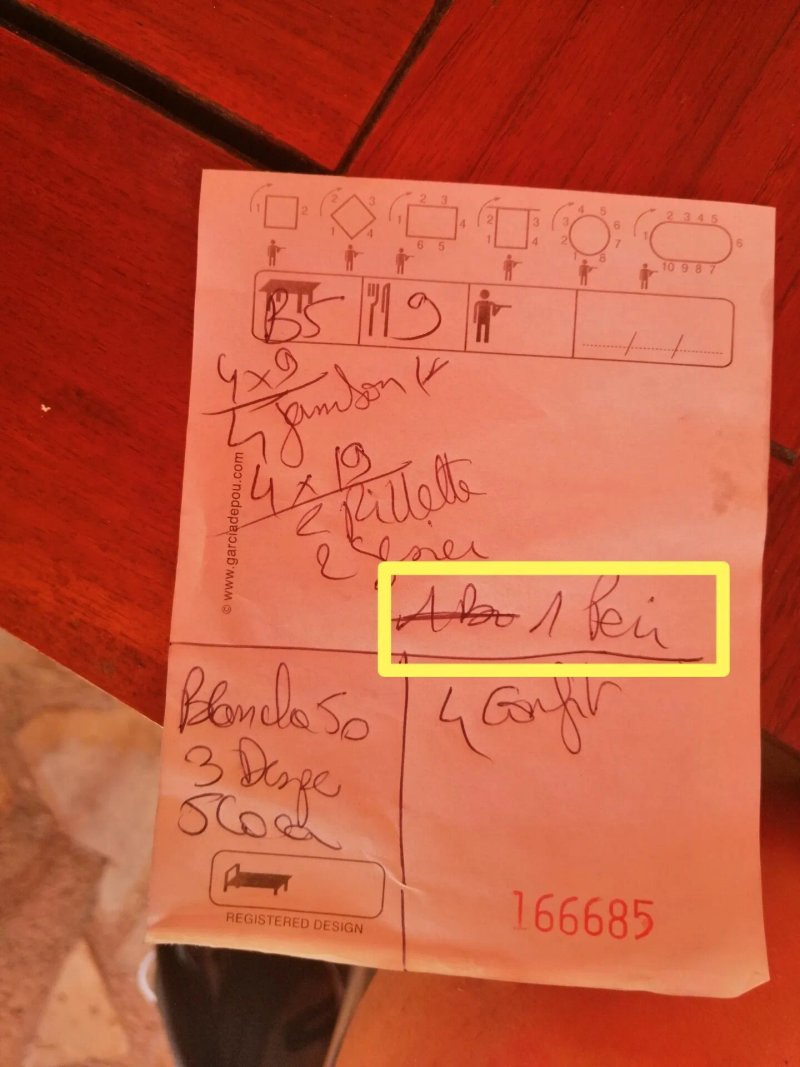 1 2
2 3 1 4
2 3 1 4 6 5
2 3 1 4
4 5 3 6 2 7 1 8
2 3 4 5 1 6 10 9 8 7
B5 9
4x9
4 Jambon
4 x 19
2 Rillette
2 Gesier
1 Peu
© www.garciadepou.com
Blanche 50
3 Despe
5 Coca
4 Confit
REGISTERED DESIGN
166685